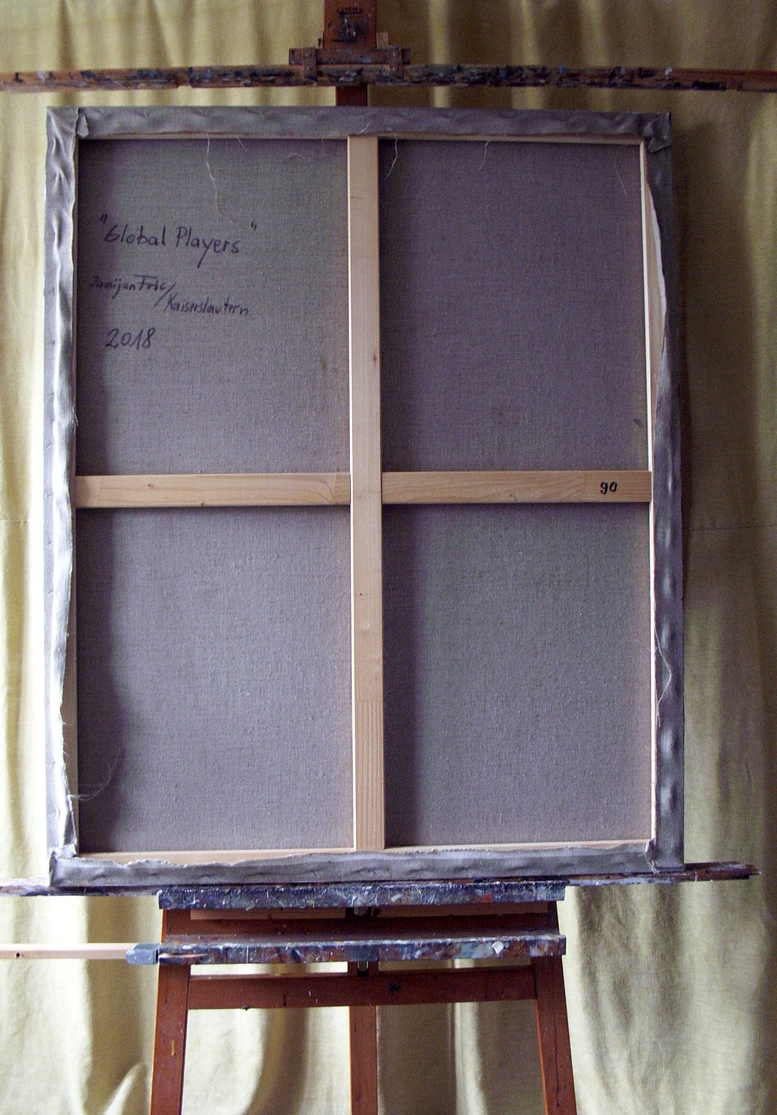 "Global Players"
Damijan Fric/
Kaiserslautern
2018
90